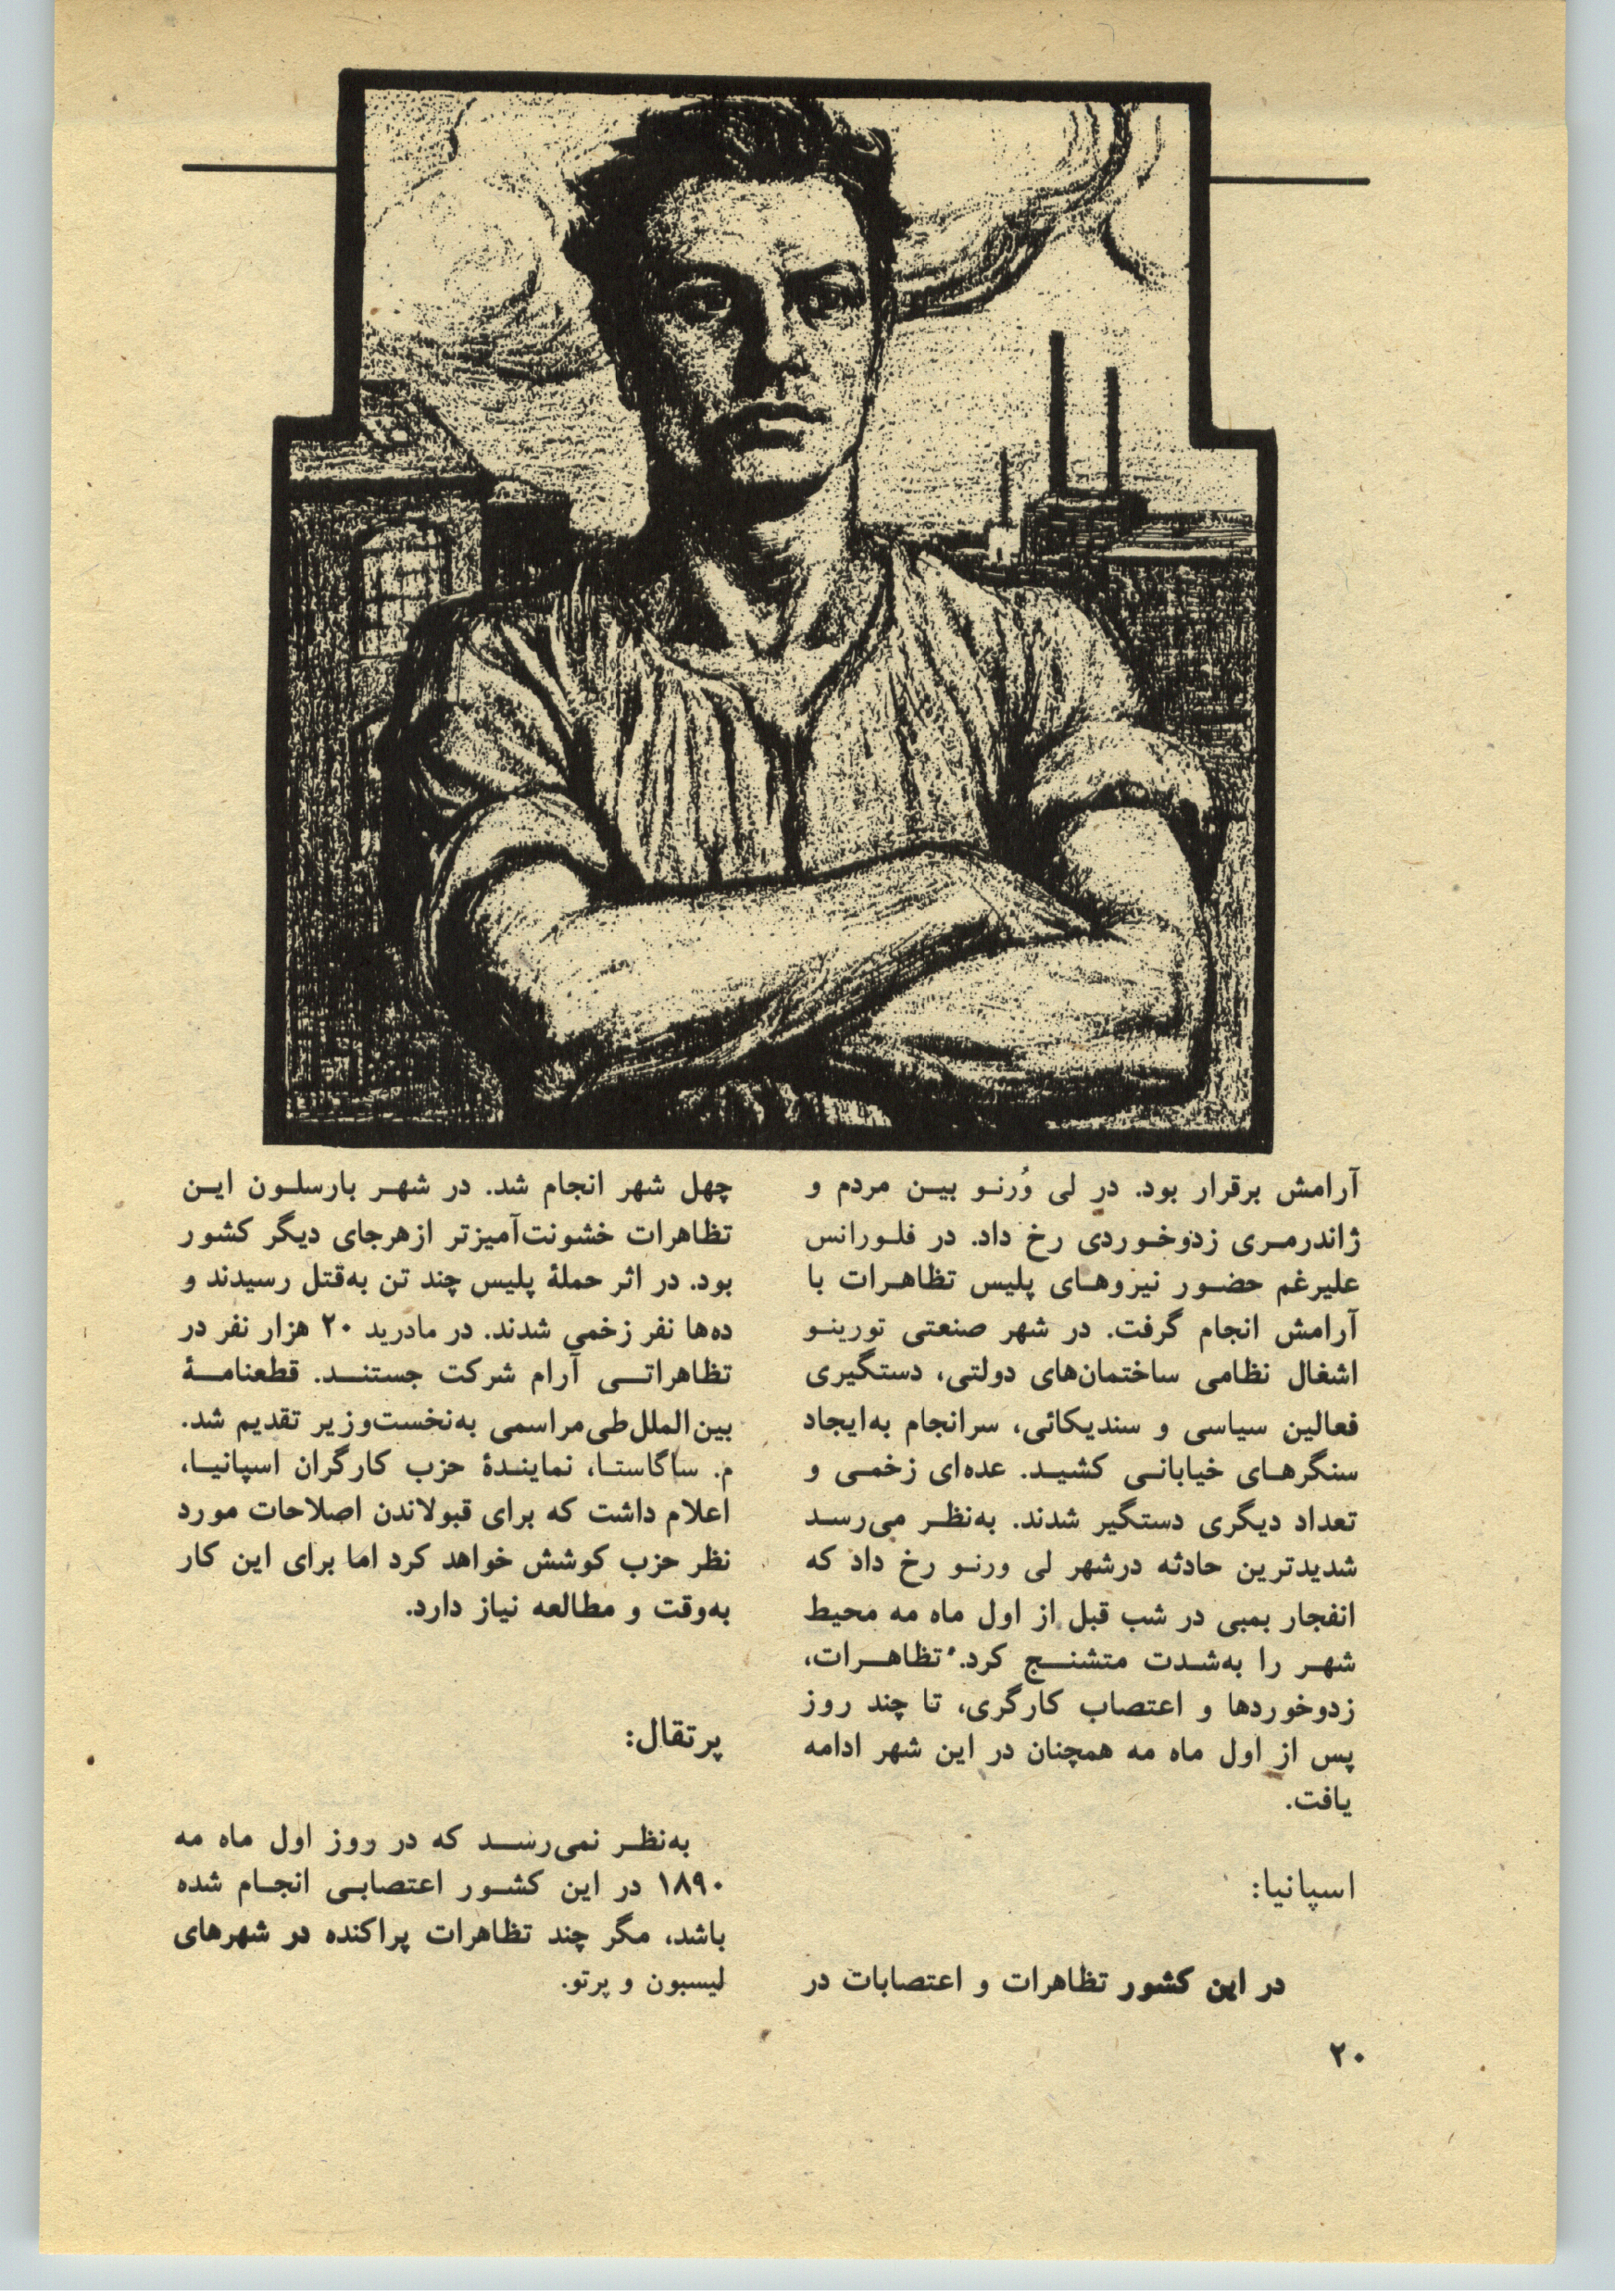 آرامش برقرار بود. در لی وُرنو بین مردم و
ژاندرمری زدوخوردی رخ داد. در فلورانس
علیرغم حضور نیروهای پلیس تظاهرات با
آرامش انجام گرفت. در شهر صنعتی تورینو
اشغال نظامی ساختمان‌های دولتی، دستگیری
فعالین سیاسی و سندیکائی، سرانجام به‌ایجاد
سنگرهای خیابانی کشید. عده‌ای زخمی و
تعداد دیگری دستگیر شدند. به‌نظر می‌رسد
شدیدترین حادثه درشهر لی ورنو رخ داد که
انفجار بمبی در شب قبل از اول ماه مه محیط
شهر را به‌شدت متشنج کرد. تظاهرات،
زدوخوردها و اعتصاب کارگری، تا چند روز
پس از اول ماه مه همچنان در این شهر ادامه
یافت.
اسپانیا:
در این کشور تظاهرات و اعتصابات در
چهل شهر انجام شد. در شهر بارسلون این
تظاهرات خشونت‌آمیزتر ازهرجای دیگر کشور
بود. در اثر حملهٔ پلیس چند تن به‌قتل رسیدند و
ده‌ها نفر زخمی شدند. در مادرید ۲۰ هزار نفر در
تظاهراتی آرام شرکت جستند. قطعنامهٔ
بین‌الملل‌طی‌مراسمی به‌نخست‌وزیر تقدیم شد.
م. ساگاستا، نمایندهٔ حزب کارگران اسپانیا،
اعلام داشت که برای قبولاندن اصلاحات مورد
نظر حزب کوشش خواهد کرد اما برای این کار
به‌وقت و مطالعه نیاز دارد.
پرتقال:
به‌نظر نمی‌رسد که در روز اول ماه مه
۱۸۹۰ در این کشور اعتصابی انجام شده
باشد، مگر چند تظاهرات پراکنده در شهرهای
لیسبون و پرتو.
۲۰